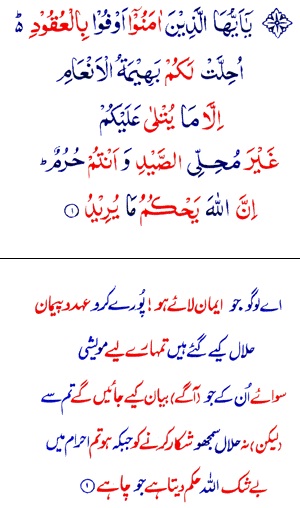 یٰۤاَیُّهَا الَّذِیْنَ اٰمَنُوْۤا اَوْفُوْا بِالْعُقُوْدِ ؕ
اُحِلَّتْ لَكُمْ بَهِیْمَةُ الْاَنْعَامِ
اِلَّا مَا یُتْلٰى عَلَیْكُمْ
غَیْرَ مُحِلِّی الصَّیْدِ وَ اَنْتُمْ حُرُمٌ ؕ
اِنَّ اللّٰهَ یَحْكُمُ مَا یُرِیْدُ ۝۱
اے لوگو جو ایمان لائے ہو ! پُورے کرو عہدد پیمان
حلال کیے گئے ہیں تمہارے لیے مویشی
سوائے اُن کے جو (آگے) بیان کیے جائیں گے تم سے
(لیکن) نہ حلال سمجھو شکار کرنے کو جبکہ ہو تم احرام میں
بے شک اللہ حکم دیتا ہے جو چاہے ۝۱